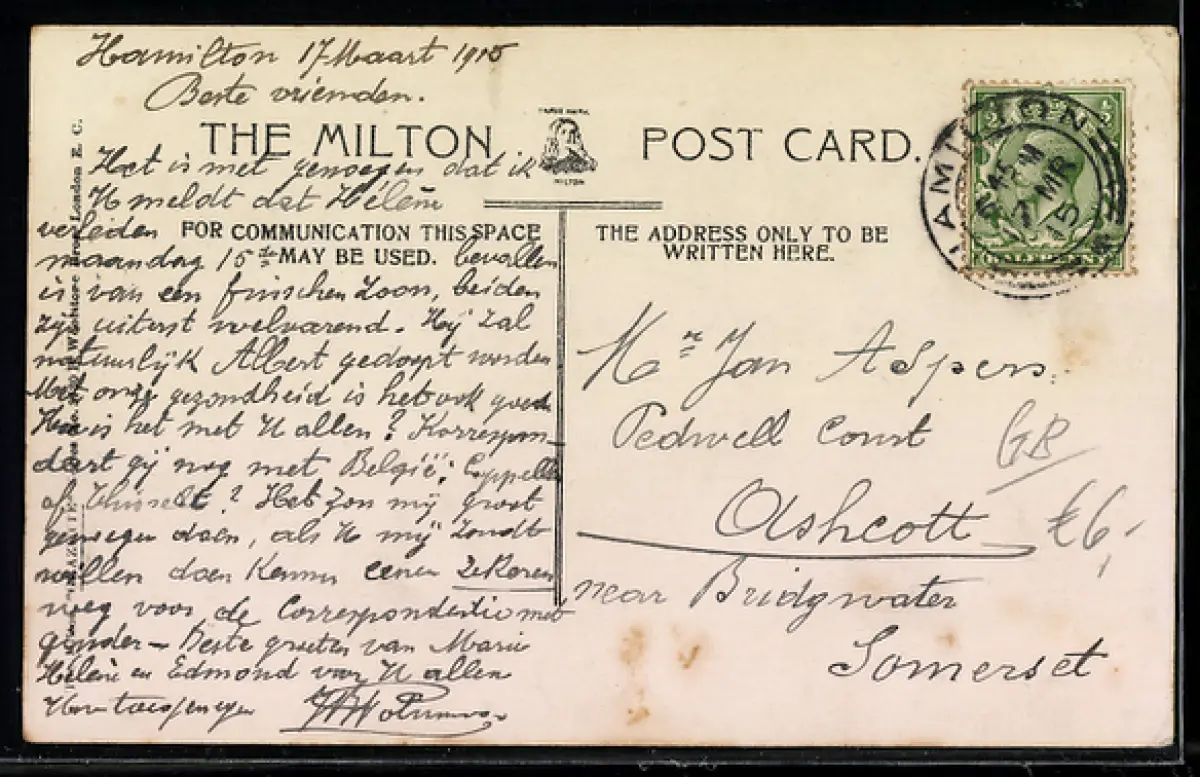 Hamilton 17 Maart 1915
Beste vrienden.
THE MILTON
TRADE MARK
MILTON
POST CARD.
Het is met genoegen dat ik
U meldt dat Hélène
verleden
FOR COMMUNICATION THIS SPACE
maandag 15de
MAY BE USED.
bevallen
is van een frisschen Zoon, beiden
zijn uiterst welvarend. Hij Zal
natuurlijk Albert gedoopt worden
Met onze gezondheid is het ook goed
Hoe is het met U allen? Korrespon-
deert gij nog met België; Cappelle
of Thisselt? Het Zou mij groot
genoegen doen, als U mij Zoudt
willen doen Kennen eenen ZeKeren
weg voor de Correspondentie met
ginder - Beste groeten van Marie
Hélène en Edmond voor U allen
Uwe toegenegen
London E. C.
THE ADDRESS ONLY TO BE
WRITTEN HERE.
HAMILTON
17 MR
15
HALFPENNY
Mr Jan Aspers.
Pedwell Court
GB
Ashcott
£6,-
near Bridgwater
Somerset